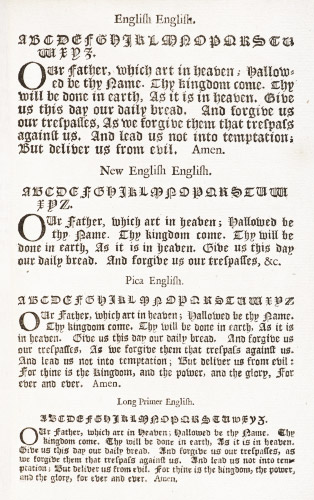 English English.
ABCDEFGHIKLMNOPQRSTU
WXYZ.
OUr Father, which art in heaven; Hallow-
ed be thy Name. Thy kingdom come. Thy
will be done in earth, As it is in heaven. Give
us this day our daily bread. And forgive us
our trespasses, As we forgive them that trespass
against us. And lead us not into temptation;
But deliver us from evil. Amen.
New English English.
ABCDEFGHJKLMNOPQRSTUW
XYZ.
OUr Father, which art in heaven; Hallowed be
thy Name. Thy kingdom come. Thy will be
done in earth, As it is in heaven. Give us this day
our daily bread. And forgive us our trespasses, &c.
Pica English.
ABCDEFGHIJKLMNOPQRSTUWXYZ
OUr Father, which art in heaven; Hallowed be thy Name.
Thy kingdom come. Thy will be done in earth, As it is
in heaven. Give us this day our daily bread. And forgive us
our trespasses, As we forgive them that trespass against us.
And lead us not into temptation; But deliver us from evil:
For thine is the kingdom, and the power, and the glory, For
ever and ever. Amen.
Long Primer English.
ABCDEFGHIJKLMNOPQRSTUWXYZ.
OUr Father, which art in heaven; Hallowed be thy Name. Thy
kingdom come. Thy will be done in earth, As it is in heaven.
Give us this day our daily bread. And forgive us our trespasses, as
we forgive them that trespass against us. And lead us not into tem-
ptation; But deliver us from evil. For thine is the kingdom, the power,
and the glory, for ever and ever. Amen.